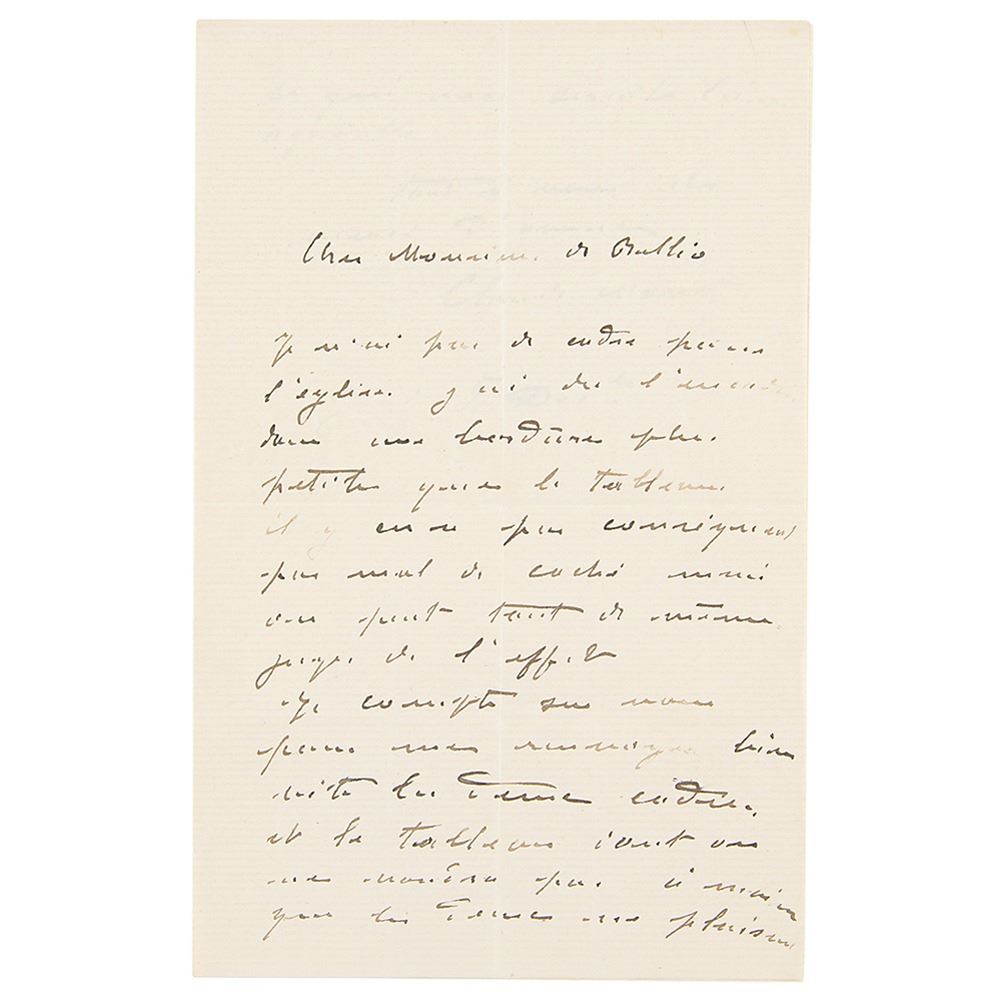 Cher Monsieur de Bellio
Je n'ai pas de cadre pour
l'église. j'ai du l'
dans une bordure plus
petite que le tableau.
il y en a par conséquent
pas mal de caché mais
on peut tout de même
juger de l'effet
Je compte sur vous
pour me renvoyer bien
vite les deux cadres,
et le tableau dont on
ne voudra pas. à moins
que les deux ne plaisent